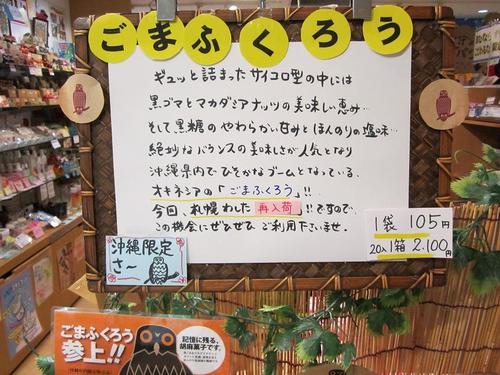 ごまふくろう
ギュッと詰まったサイコロ型の中には
黒ゴマとマカダミアナッツの美味しい恵み…
そして黒糖のやわらかい甘みとほんのりの塩味…
絶妙なバランスの美味しさが人気となり
沖縄県内でひそかなブームとなっている、
オキネシアの「ごまふくろう」!!
今回、札幌わした再入荷!!ですので、
この機会にぜひぜひご利用下さいませ。
1袋 105円
20入1箱 2.100円
沖縄限定
さ〜
ごまふくろう
参上!!
記憶に残る、
胡麻菓子です。